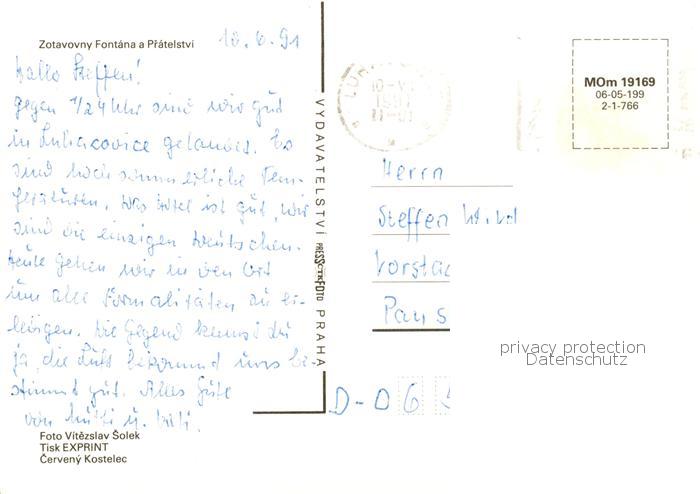 Zotavovny Fontána a Přátelství
10.6.91
Hallo Steffen!
gegen 1/2 4 Uhr sind wir gut
in Luhacovice gelandet. Es
sind hochsommerliche Tem-
peraturen. Das Hotel ist gut, wir
sind die einzigen Deutschen.
Heute gehen wir in den Ort
um alle Formalitäten zu er-
ledigen. Die Gegend kennst du
ja, die Luft bekommt uns be-
stimmt gut. Alles Gute
von Mutti u. Vati.
Foto Vítězslav Šolek
Tisk EXPRINT
Červený Kostelec
VYDAVATELSTVÍ PRESSFOTO PRAHA
10-VI
1991
MOm 19169
06-05-199
2-1-766
Herrn
Steffen
Vorstad
Paus
privacy protection
Datenschutz
D-06